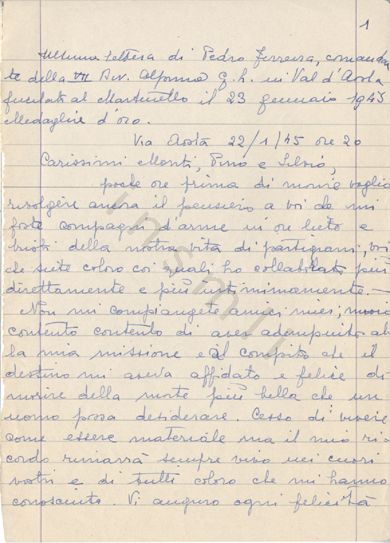 1
Ultima lettera di Pedro Ferreira, comandan
te della VII Div. Alpina G.L. in Val d'Aosta
fucilato al Martinetto il 23 gennaio 1945
Medaglia d'oro.
Via Aosta 22/1/45 ore 20
Carissimi Monti, Pino e Silvio,
poche ore prima di morire voglio
rivolgere ancora il pensiero a voi che mi
foste compagni d'arme in ore liete e
tristi della nostra vita di partigiani, voi
che siete coloro coi quali ho collaborato più
direttamente e più intimamente. —
Non mi compiangete amici miei; muoio
contento contento di aver adempiuto al
la mia missione e al compito che il
destino mi aveva affidato e felice di
morire della morte più bella che un
uomo possa desiderare. Cesso di vivere
come essere materiale ma il mio ri
cordo rimarrà sempre vivo nei cuori
vostri e di tutti coloro che mi hanno
conosciuto. Vi auguro ogni felicità